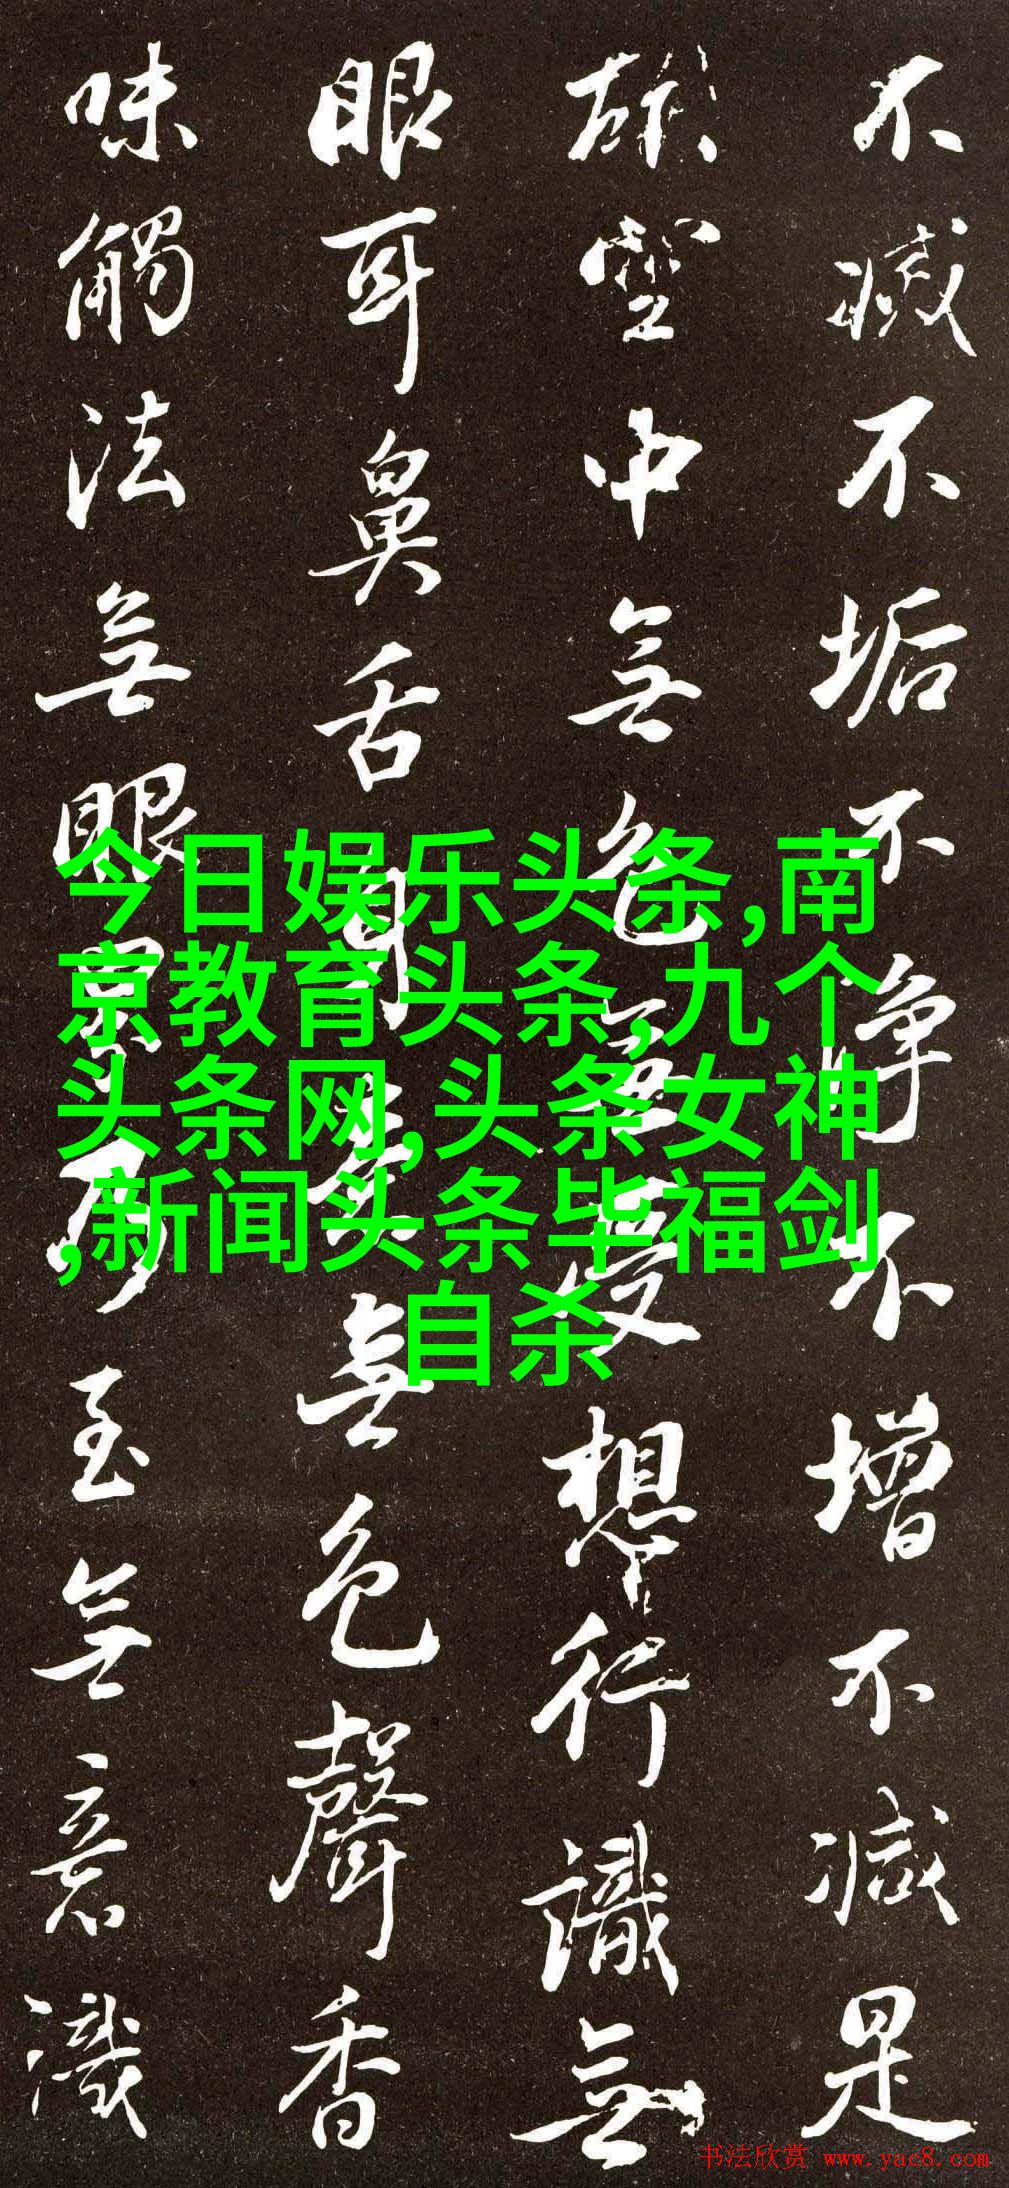 不減不垢不淨不增不減是
故空中無色無受想行識無
眼耳鼻舌身意無色聲香
味觸法無眼界乃至無意識
今日娱乐头条,南
京教育头条,九个
头条网,头条女神
,新闻头条毕福剑
自杀
书法欣赏 www.yac8.com